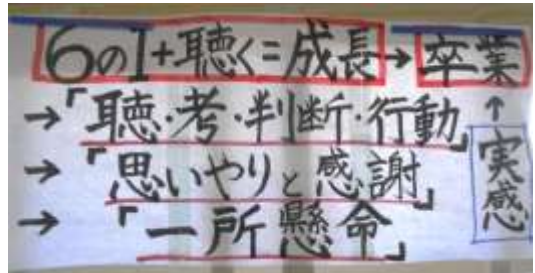 6のI+聴く=成長→卒業
→「聴・考・判断・行動」
→「思いやりと感謝」
→「一所懸命」
↑
実感